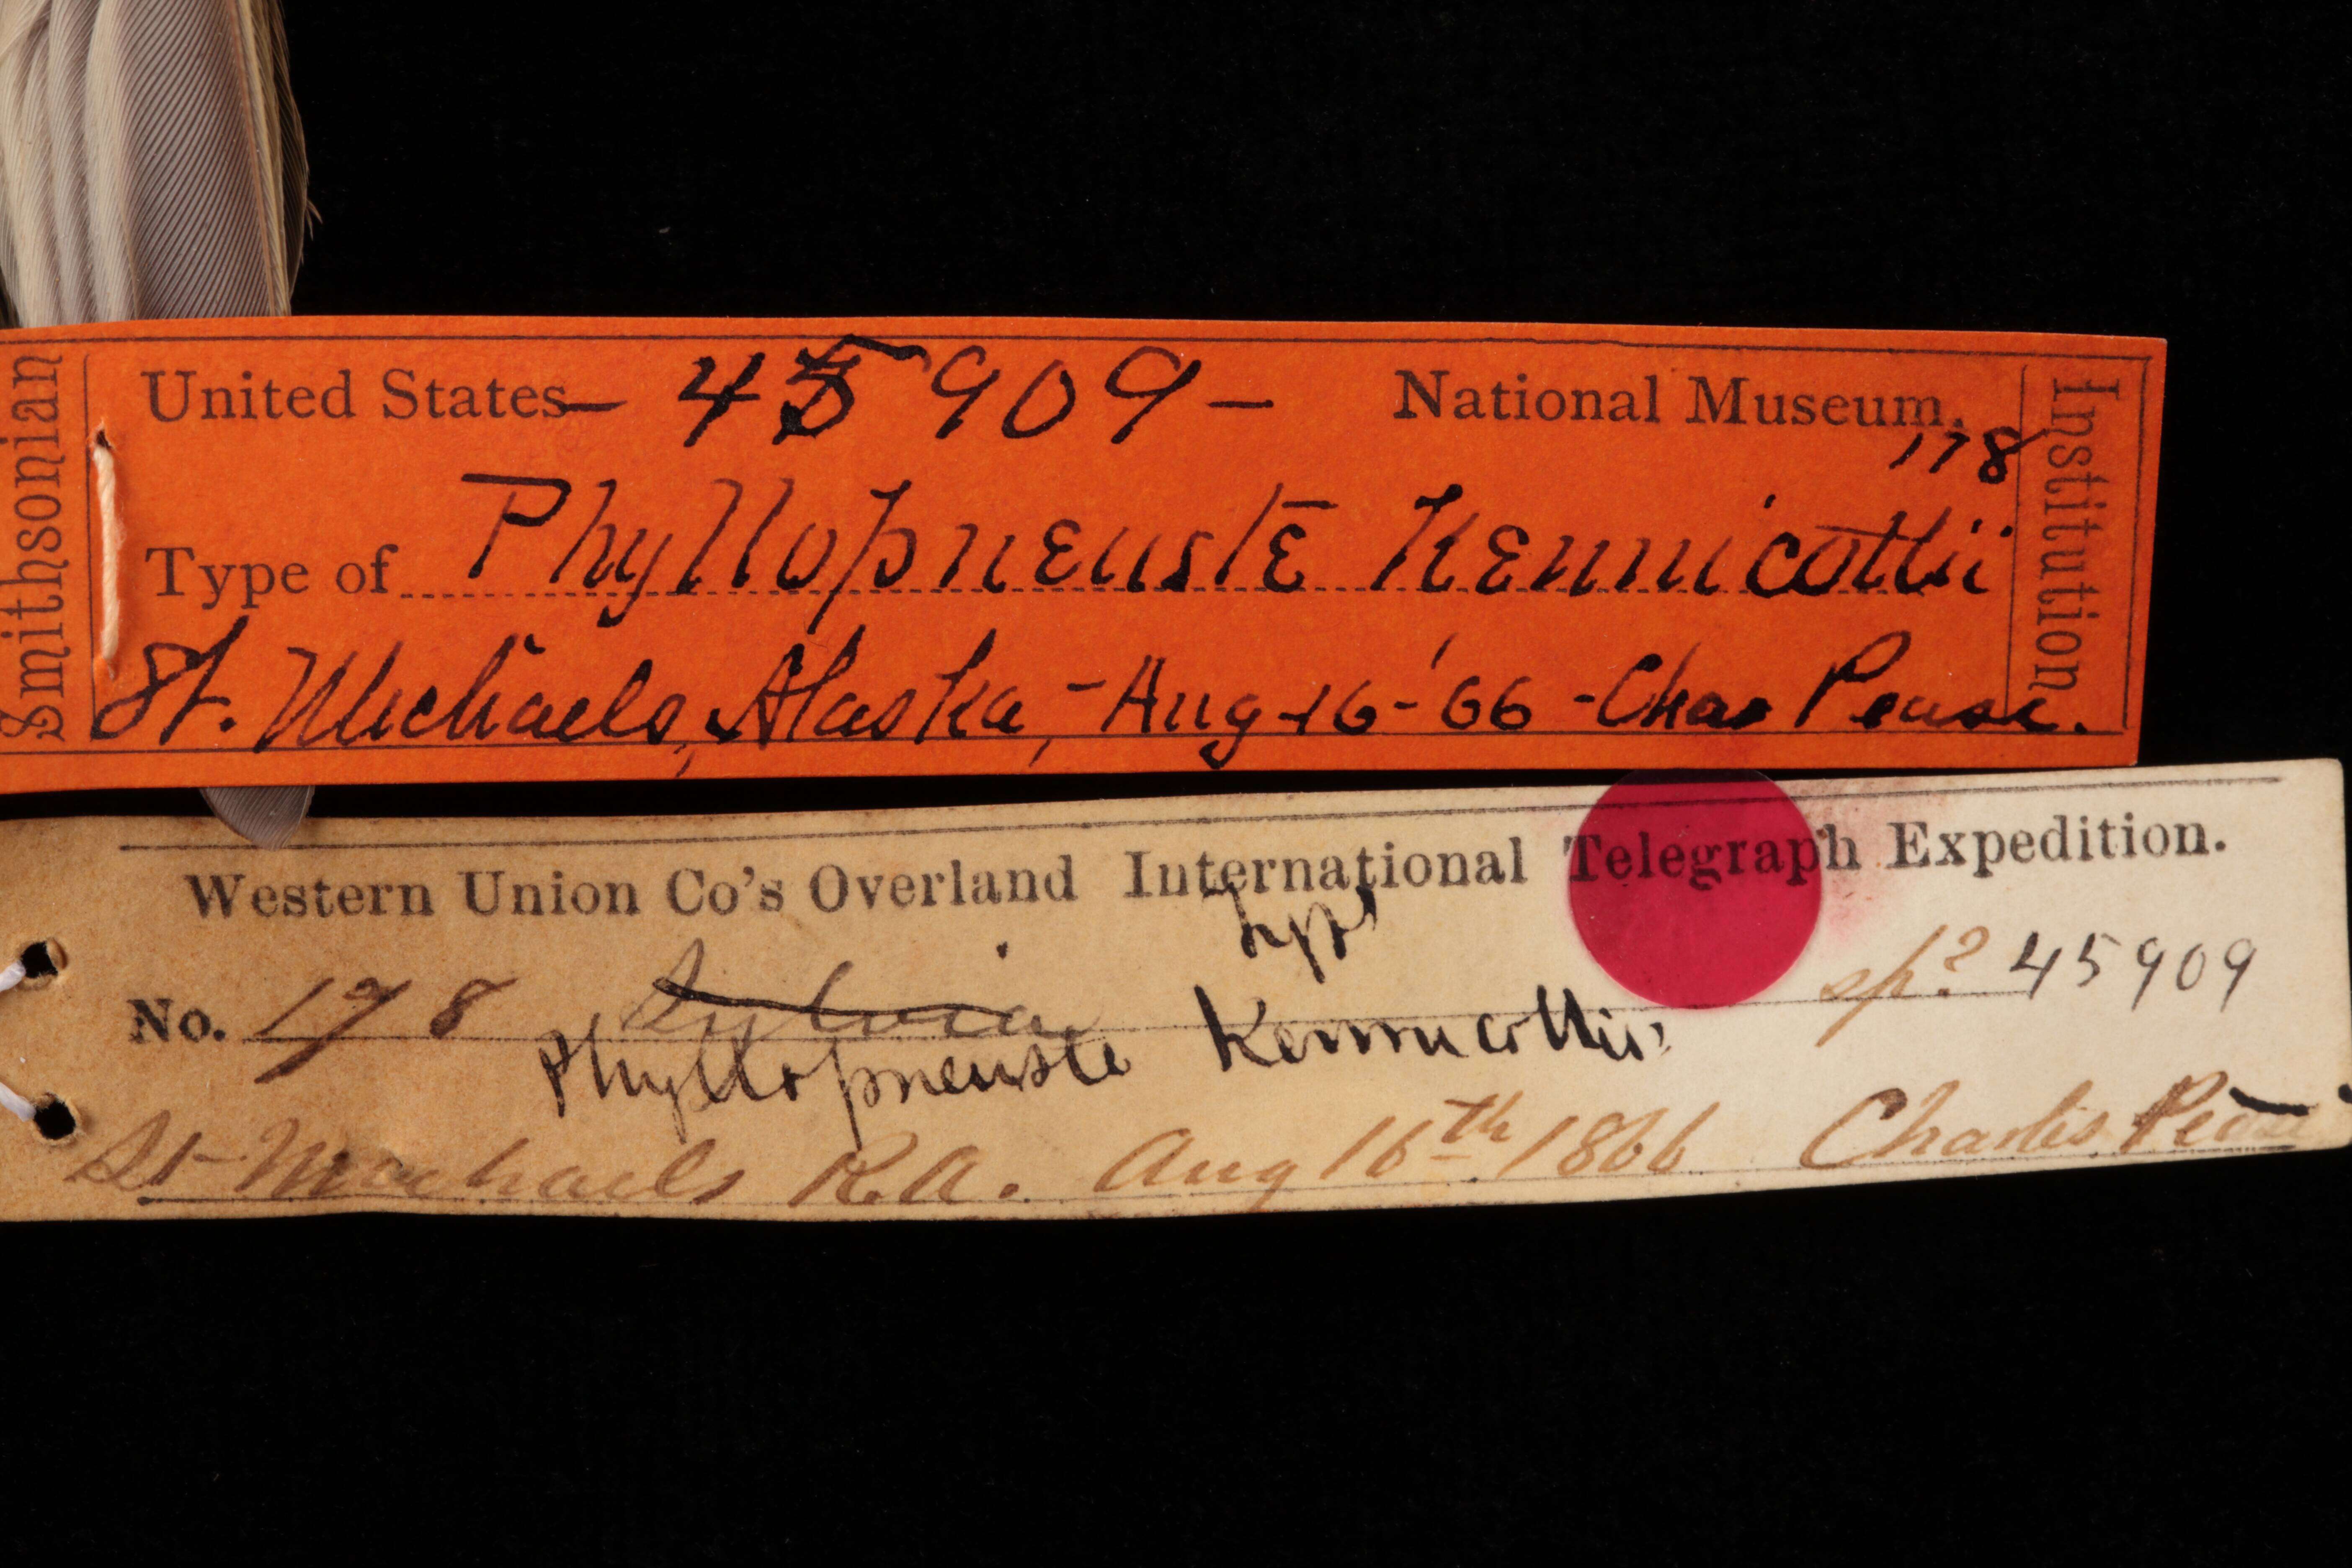 Smithsonian
United States - 45909 - National Museum.
178
Type of Phyllopneuste Kennicottii
St. Michaels, Alaska, - Aug 16 - '66 - Chas Pease.
Institution
Western Union Co's Overland International Telegraph Expedition.
Type
No. 178 Sylvia sp? 45909
Phyllopneuste Kennicottii
St Michaels R.A. Aug 16th 1866 Charles Pease